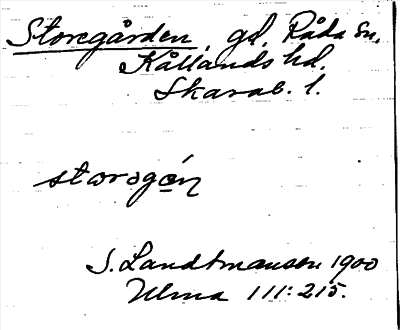 Storegården, gd, Råda sn,
Kållands hd.
Skarab. l.
storəgɷ́n
S. Landtmanson 1900
Ulma 111:215.